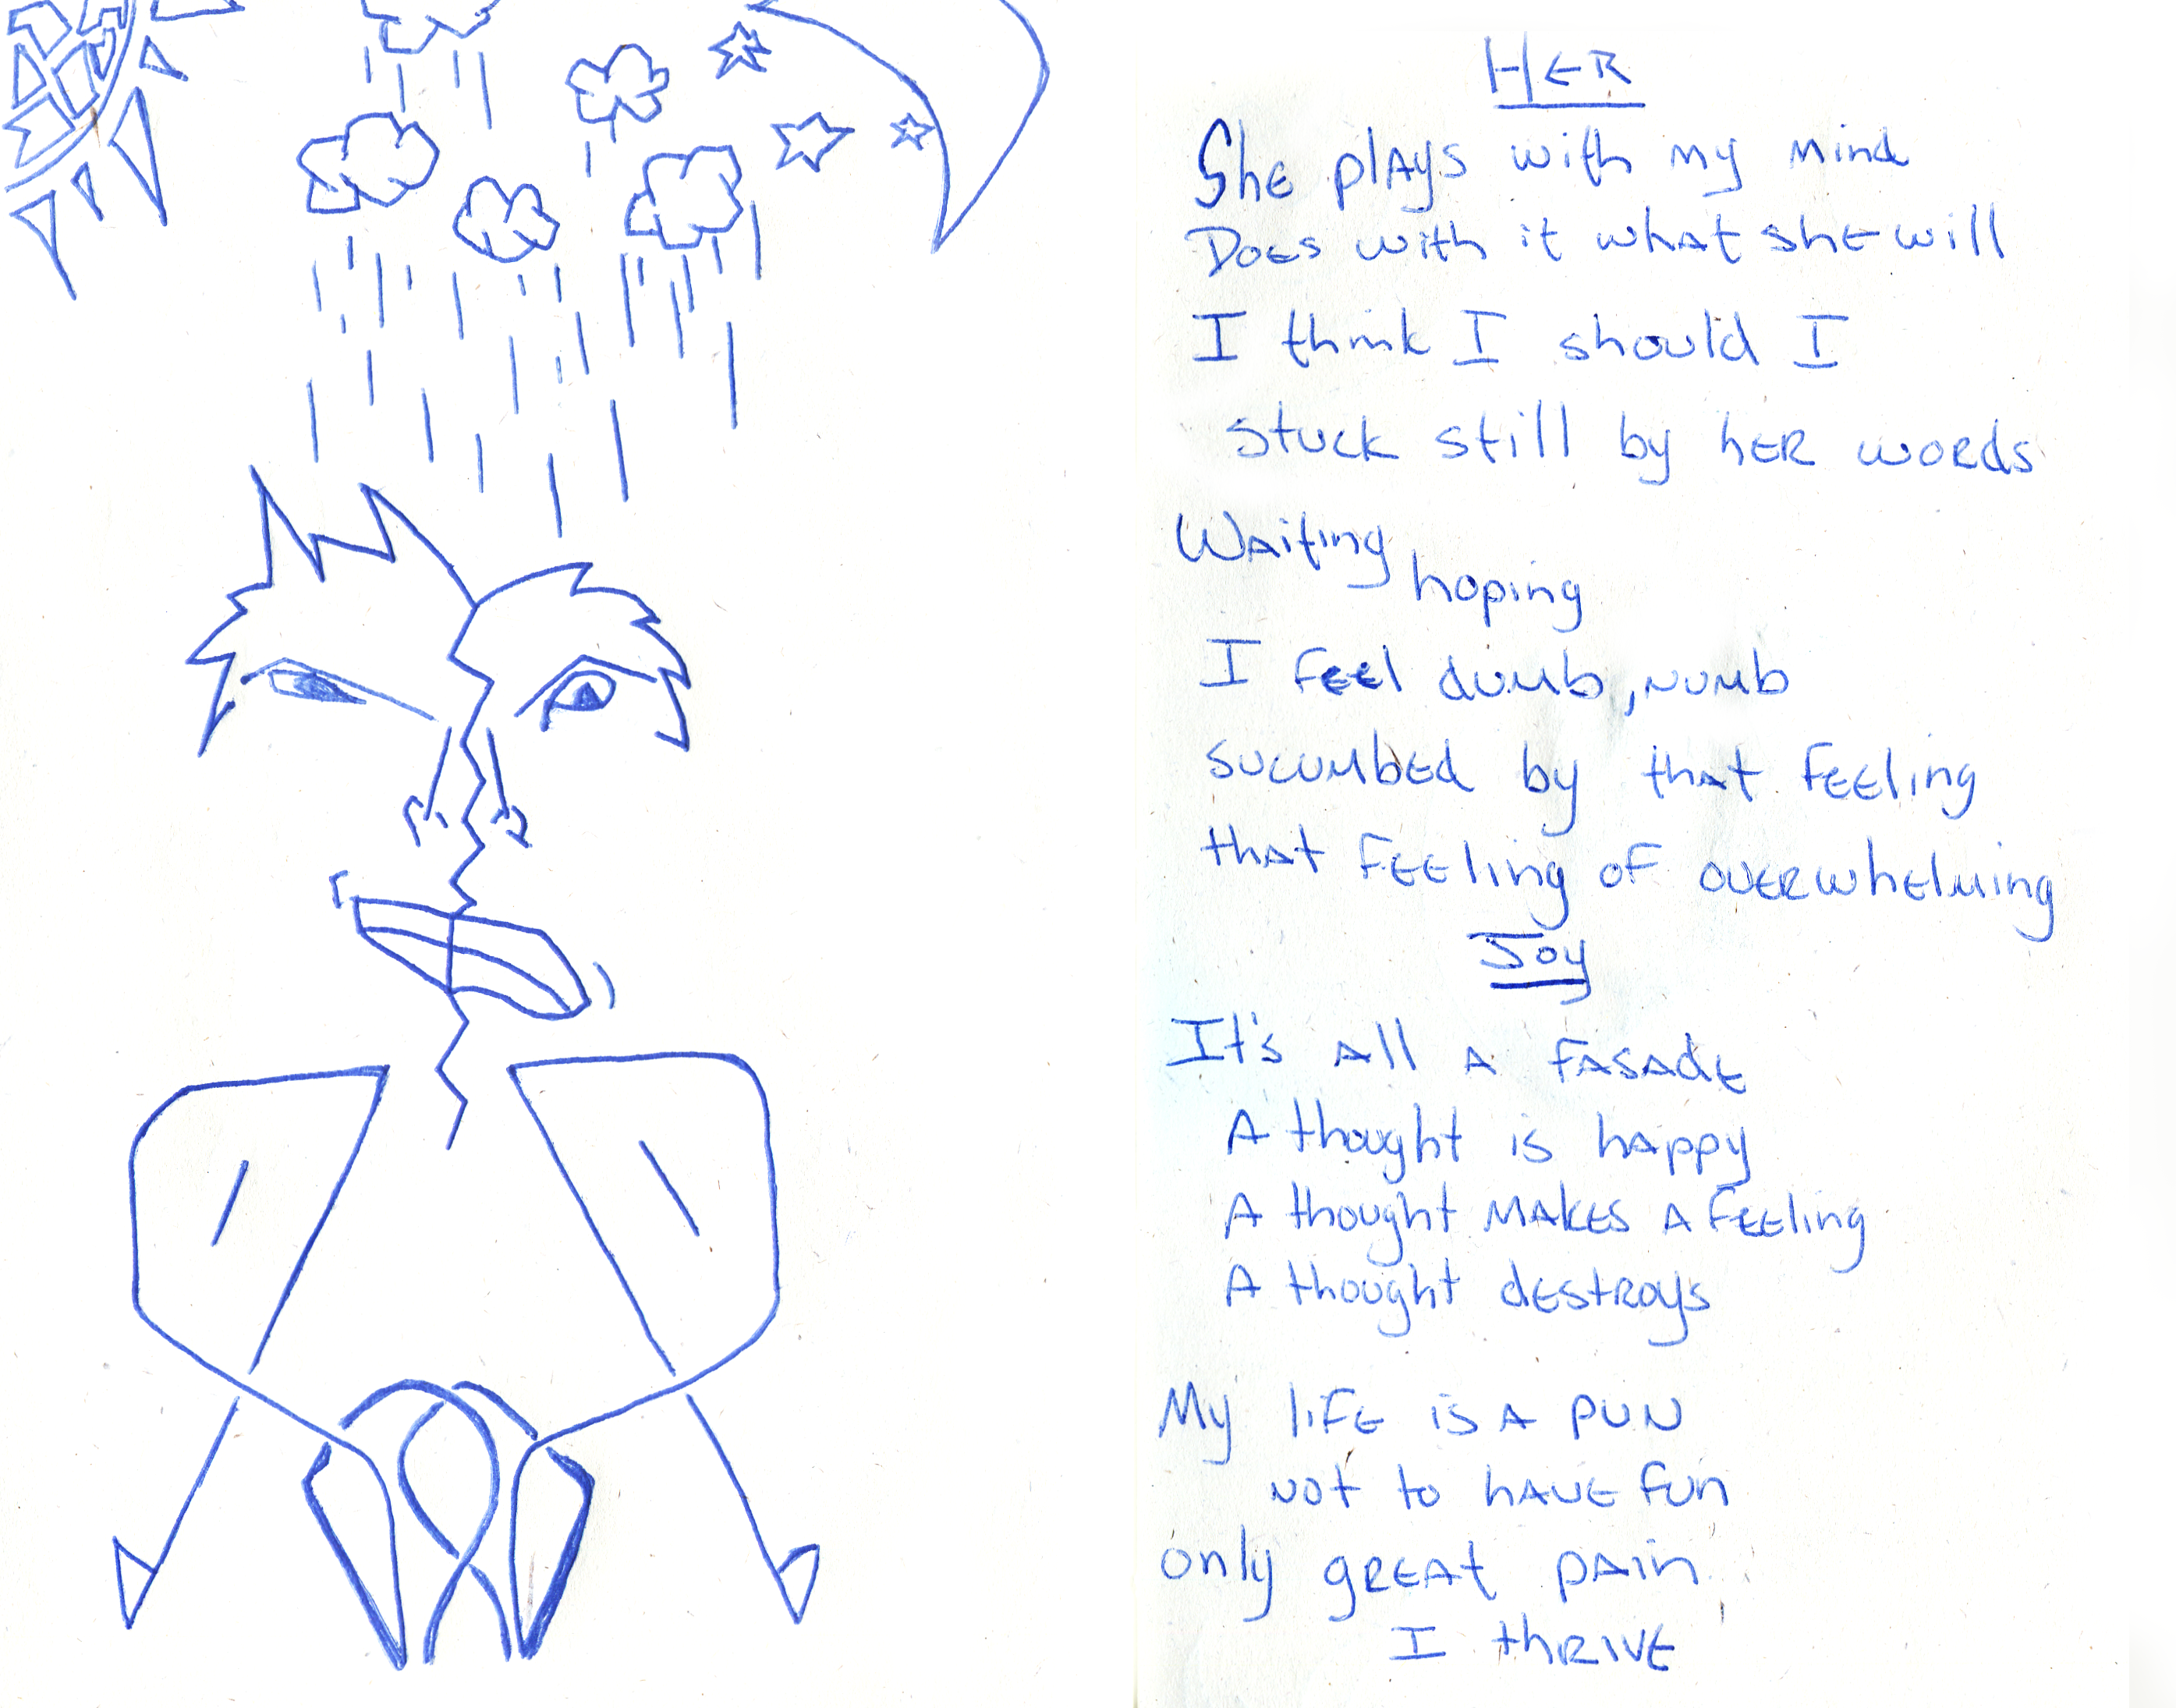 HER
She plays with my mind
Does with it what she will
I think I should I
stuck still by her words
Waiting
hoping
I feel dumb, numb
sucumbed by that feeling
that feeling of overwhelming
Joy
It's all a fasade
A thought is happy
A thought makes a feeling
A thought destroys
My life is a pun
not to have fun
only great pain
I thrive